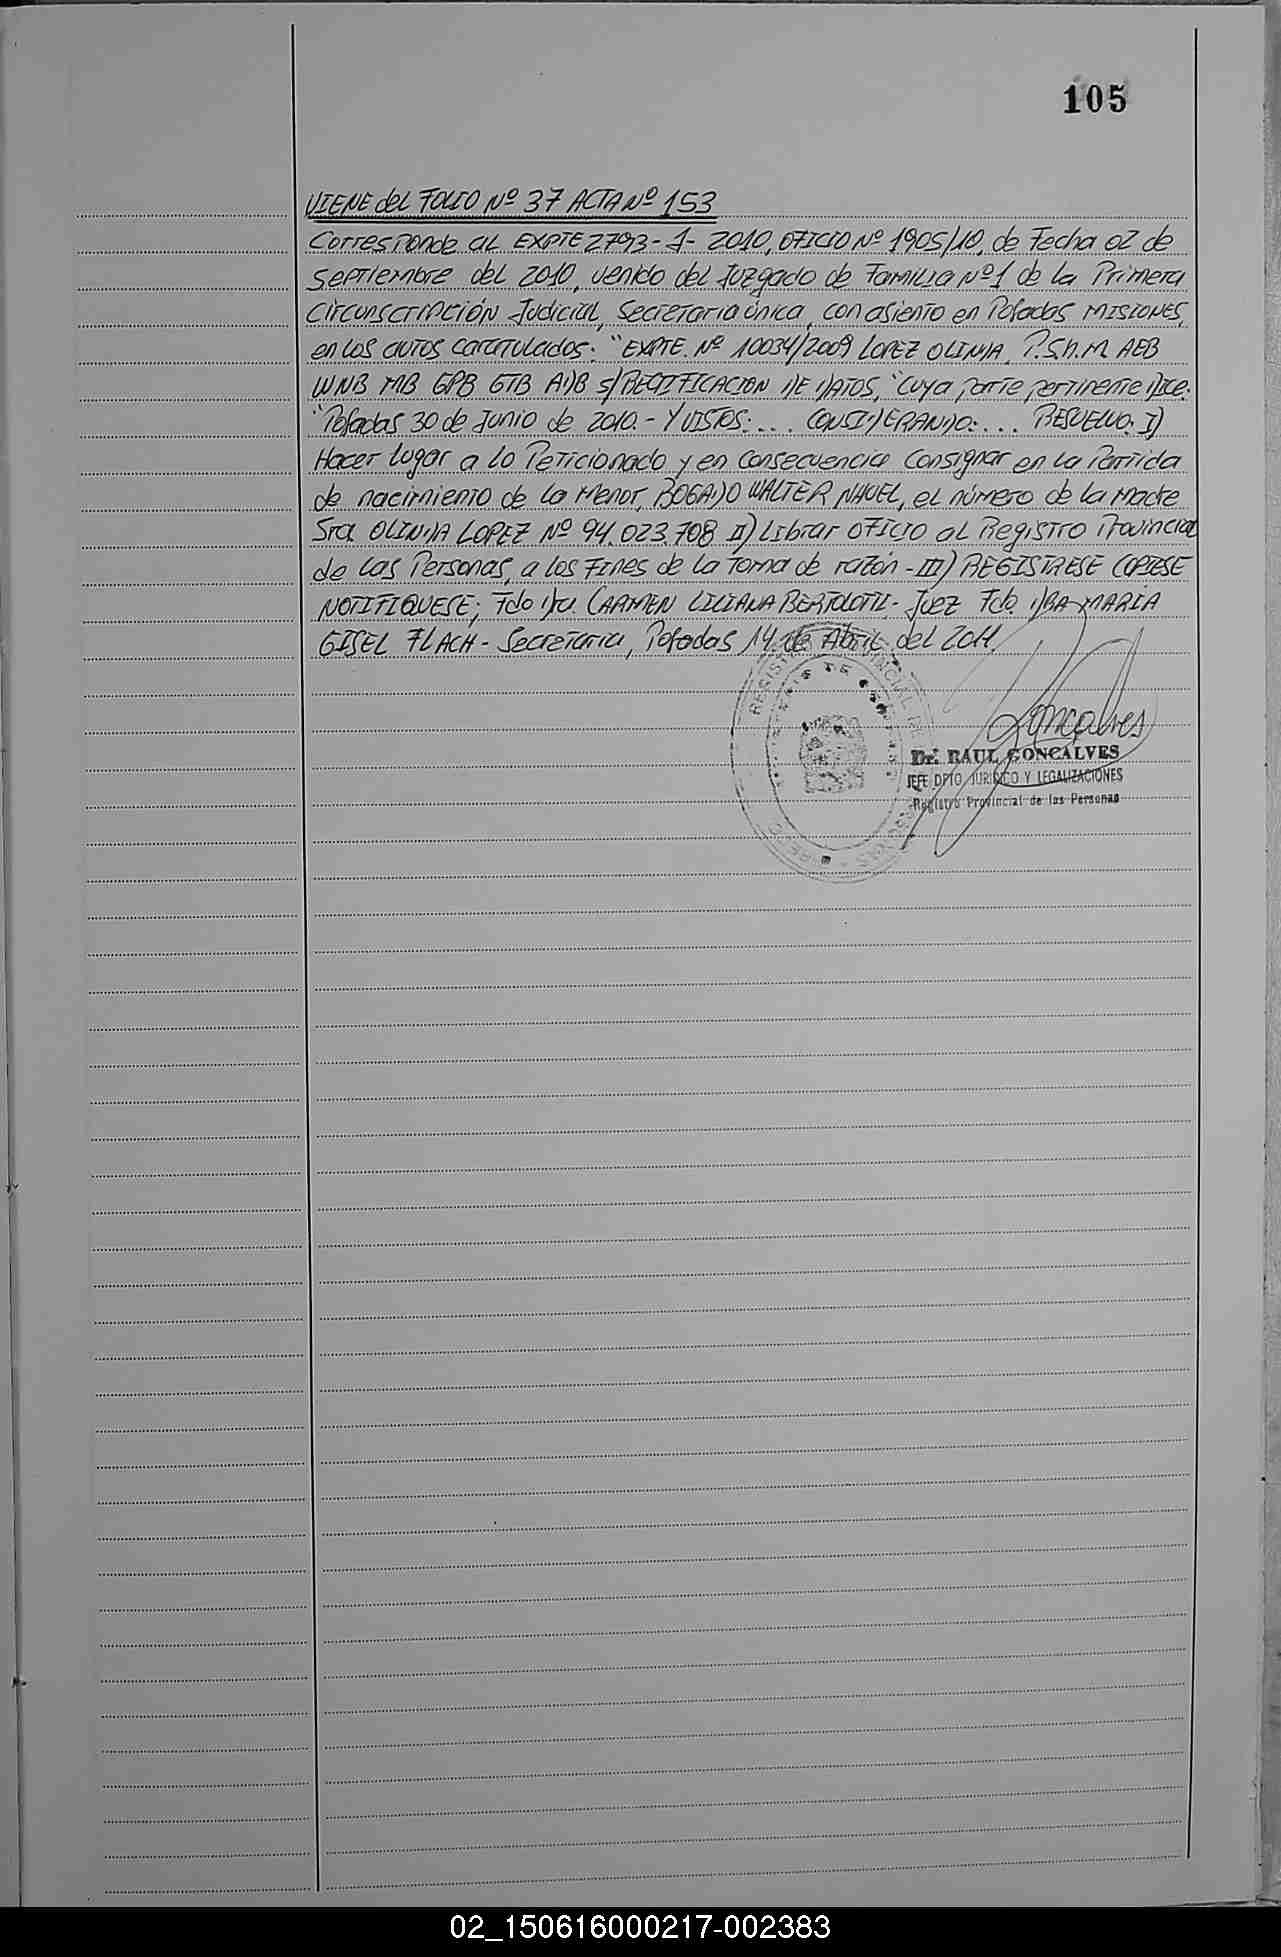 105
VIENE del FOLIO Nº 37 ACTA Nº 153
Corresponde al EXPTE 2793-J-2010, OFICIO Nº 1905/10, de Fecha 02 de
Septiembre del 2010, venido del Juzgado de Familia Nº 1 de la Primera
Circunscripción Judicial, Secretaria única, con asiento en Posadas MISIONES,
en los autos caratulados: "EXPTE. Nº 10034/2009 LOPEZ OLINDA, P.S.h.M AEB
WNB MB GPB GTB ADB S/RECTIFICACION DE DATOS," Cuya parte pertinente Dice:
"Posadas 30 de Junio de 2010.- Y VISTOS:... CONSIDERANDO:... RESUELVO: I)
Hacer lugar a lo Peticionado y en consecuencia Consignar en la Partida
de nacimiento de lo Menor, BOGADO WALTER NAUEL, el número de la Madre
Sra OLINDA LOPEZ Nº 94.023.708 II) Librar OFICIO al Registro Provincial
de las Personas, a los Fines de la toma de razón - III) REGISTRESE COPIESE
NOTIFIQUESE; Fdo Dra. CARMEN LILIANA BERTOLOTTI - Juez Fdo. DRA MARIA
GISEL FLACH - Secretaria, Posadas, 14 de Abril del 2011.
Goncalves
Dr. RAUL GONCALVES
JEFE DPTO. JURIDICO Y LEGALIZACIONES
Registro Provincial de las Personas
02_150616000217-002383